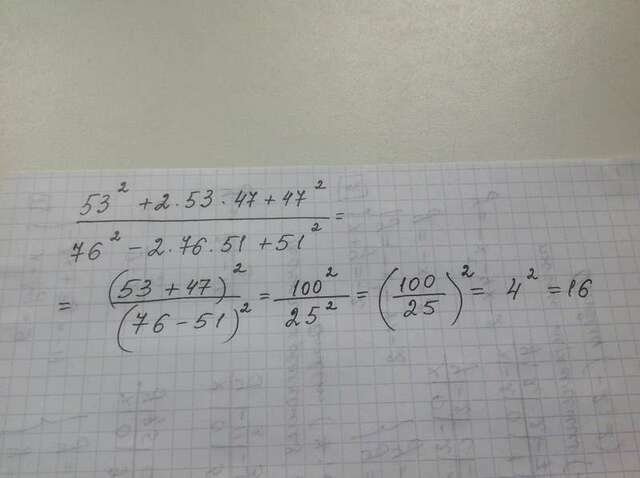 53² + 2·53·47 + 47²
76² − 2·76·51 + 51² =
= (53 + 47)² / (76 − 51)² = 100² / 25² = (100 / 25)² = 4² = 16